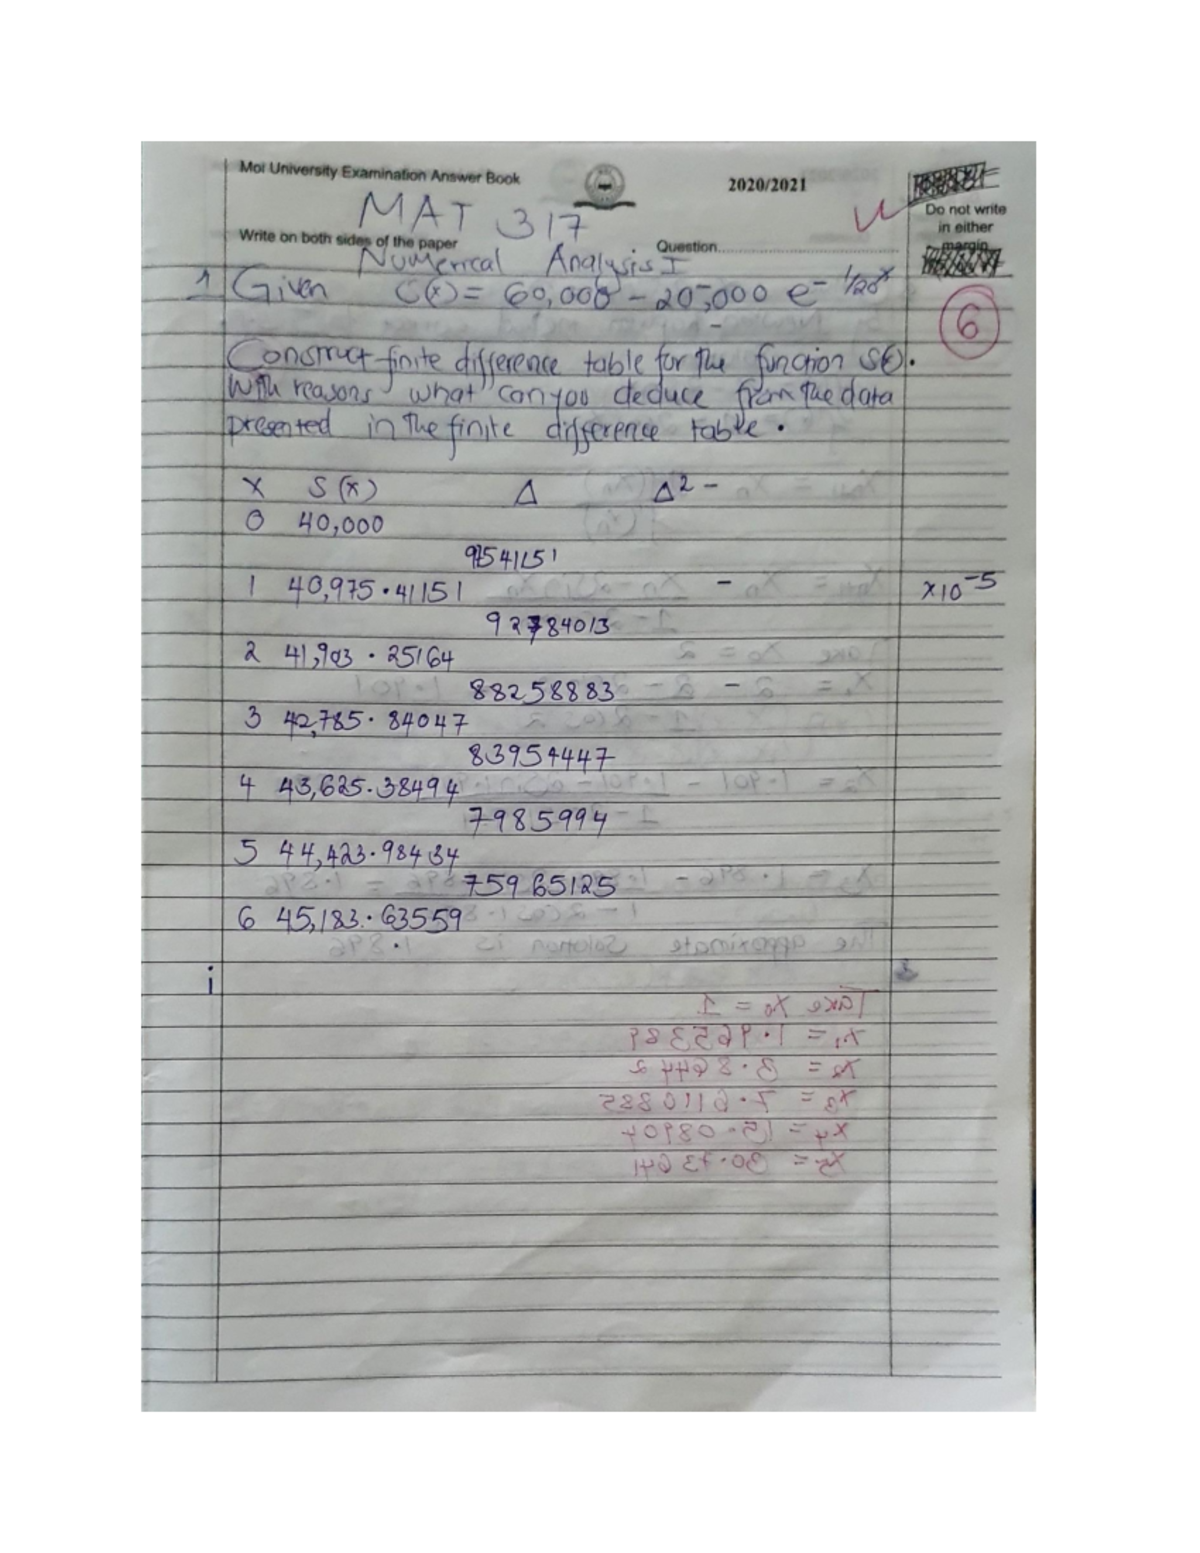 Moi University Examination Answer Book
2020/2021
MAT 317
Do not write
in either
margin
Write on both sides of the paper
Question
Numerical Analysis I
1 Given C(x) = 60,000 - 20,000 e^- 1/20x
6
Construct finite difference table for the function S(x).
With reasons what can you deduce from the data
presented in the finite difference table.
x S(x) Δ Δ² -
0 40,000
97541151
1 40,975.41151 - x10^-5
92784013
2 41,903.25164
88258883
3 42,785.84047
83954447
4 43,625.38494
7985994
5 44,423.98434
75965125
6 45,183.63559
i